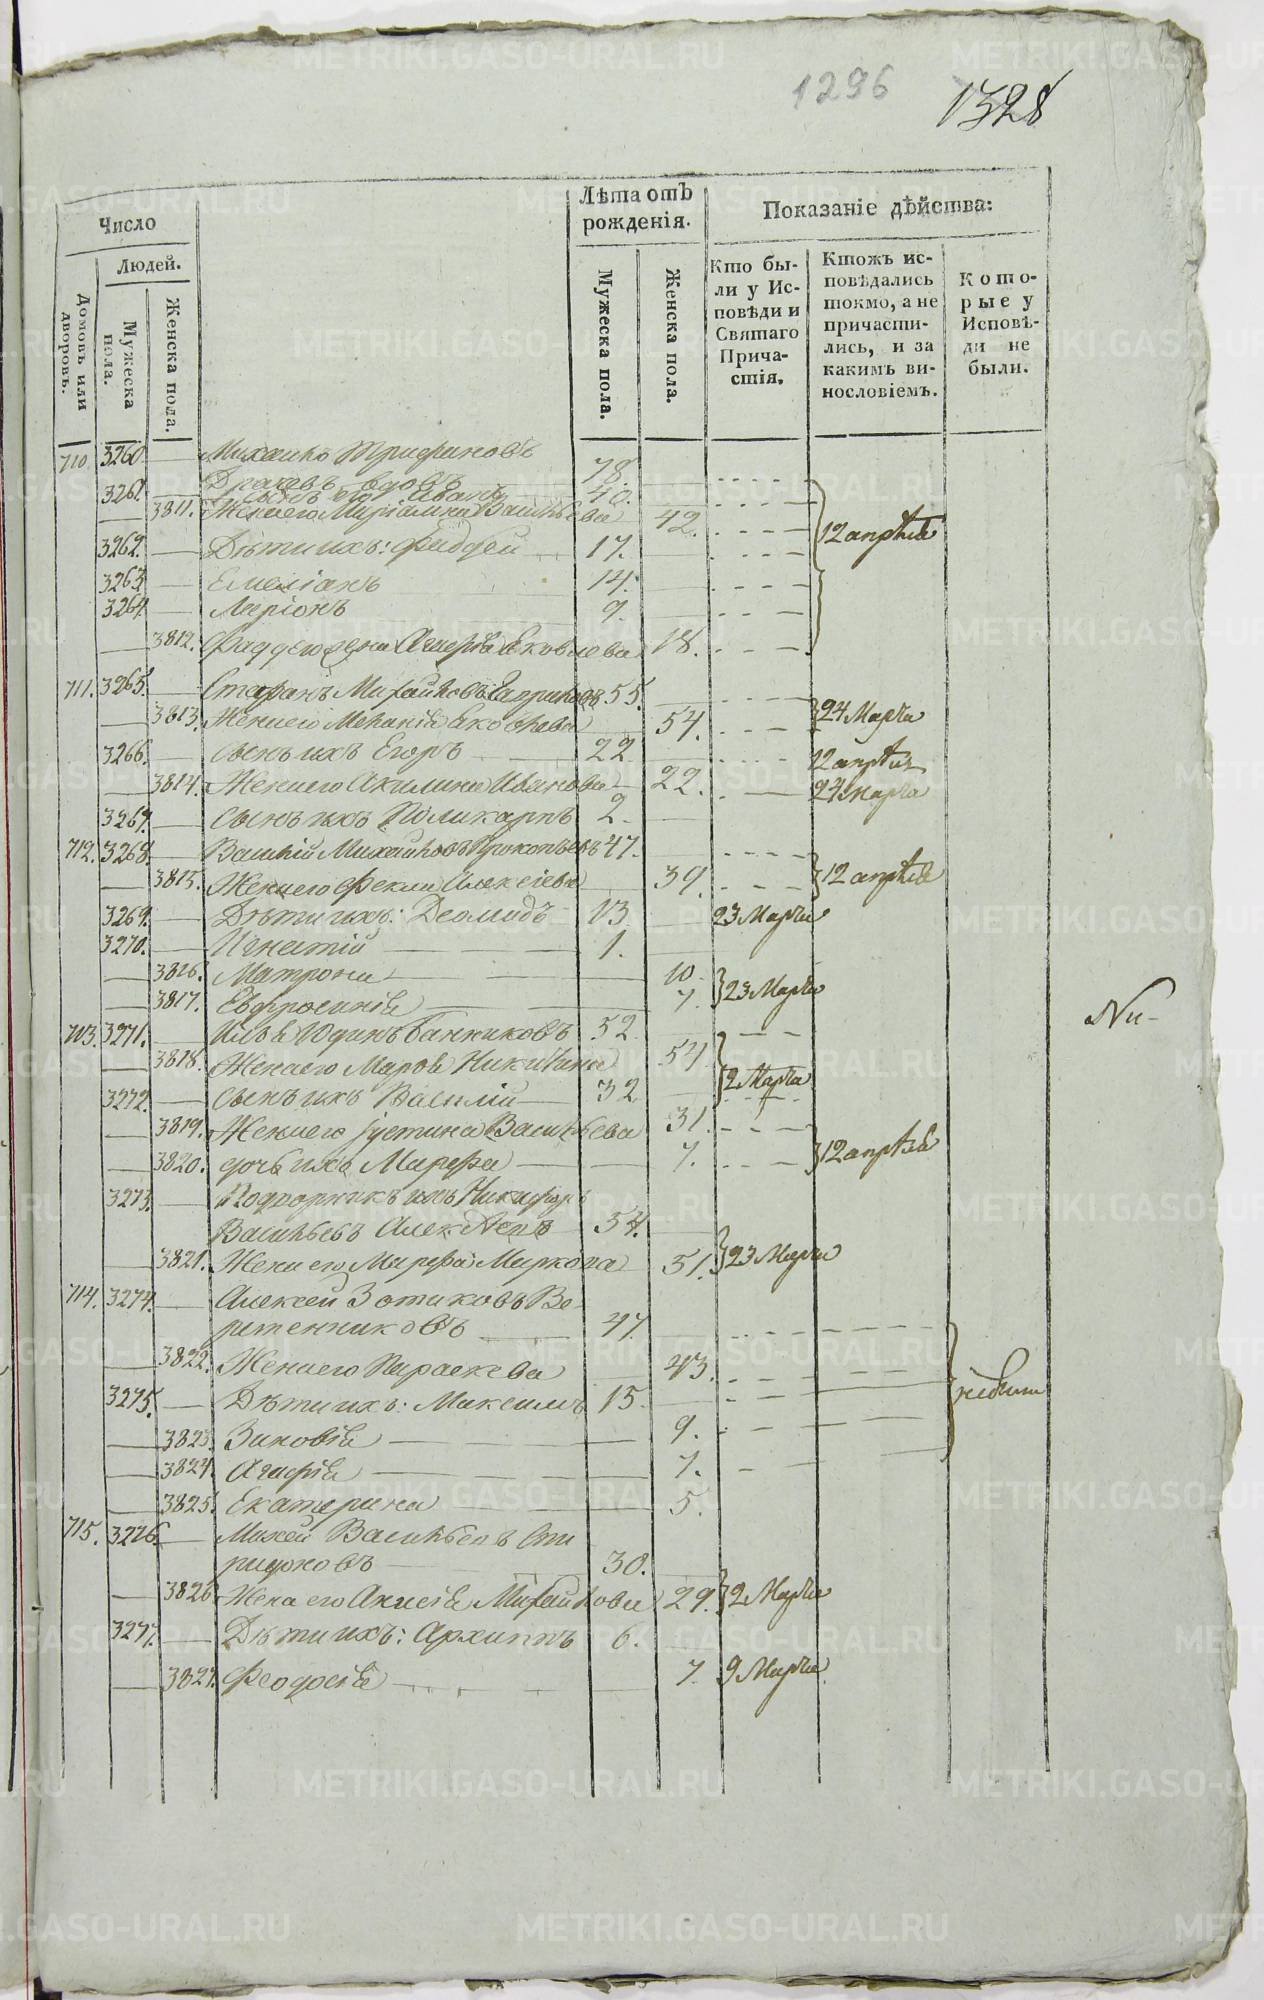 1296 1328
Число
Людей.
Домовъ или дворовъ.
Мужеска пола.
Женска пола.
Лѣта отъ рожденія.
Мужеска пола.
Женска пола.
Показаніе дѣйства:
Кто бы-
ли у Ис-
повѣди и
Святаго
Прича-
стія.
Ктожъ ис-
повѣдались
токмо, а не
причасти-
лись, и за
какимъ ви-
нословіемъ.
Кото-
рые у
Исповѣ-
ди не
были.
710. 3260. Михаило Трифоновъ
вдовъ 78.
3261. сынъ его Иванъ 40.
3811. Жена его Васильева 42. 12 апрѣля
3262. Дѣти ихъ: Фаддей 17.
3263. Емеліанъ 14.
3264. Ларіонъ 9.
3812. Фаддею жена Агафія Яковлева 18.
711. 3265. Стафанъ Михайловъ 55.
3813. Жена его Меланія Яковлева 54. 24 Марта
3266. сынъ ихъ Егоръ 22. 12 апрѣля
3814. Жена его Акилина Иванова 22. 24 Марта
3267. сынъ ихъ Поликарпъ 2.
712. 3268. Василій Михайловъ Прокопьевъ 47.
3815. Жена его Фекла Алексіева 39. 12 апрѣля
3269. Дѣти ихъ: Деомидъ 13 23 Марта
3270. Игнатій 1.
3816. Матрона 10.
3817. Евфросинія 7. 23 Марта
713. 3271. Илья Юдинъ Банниковъ 52
3818. Жена его Марѳа Никитина 54
3272. сынъ ихъ Василій 32 2 Марта
3819. Жена его Іустина Васильева 31.
3820. дочь ихъ Марфа 7. 12 апрѣля
3273. Подворникъ ихъ Никифоръ
Васильевъ 54.
3821. Жена его Марфа Маркова 51. 23 Марта
714. 3274. Алексей Зотиковъ Ве-
ретенниковъ 47.
3822. Жена его Параскева 43.
3275. Дѣти ихъ: Максимъ 15. небыли
3823. Зиновія 9.
3824. Агафія 7.
3825. Екатерина 5.
715. 3276. Михей Васильевъ Спи
ридоновъ 30.
3826. Жена его Анисія Михайлова 29. 2 Марта
3277. Дѣти ихъ: Архиппъ 6.
3827. Феодосія 7. 9 Марта
Ни-
METRIKI.GASO-URAL.RU